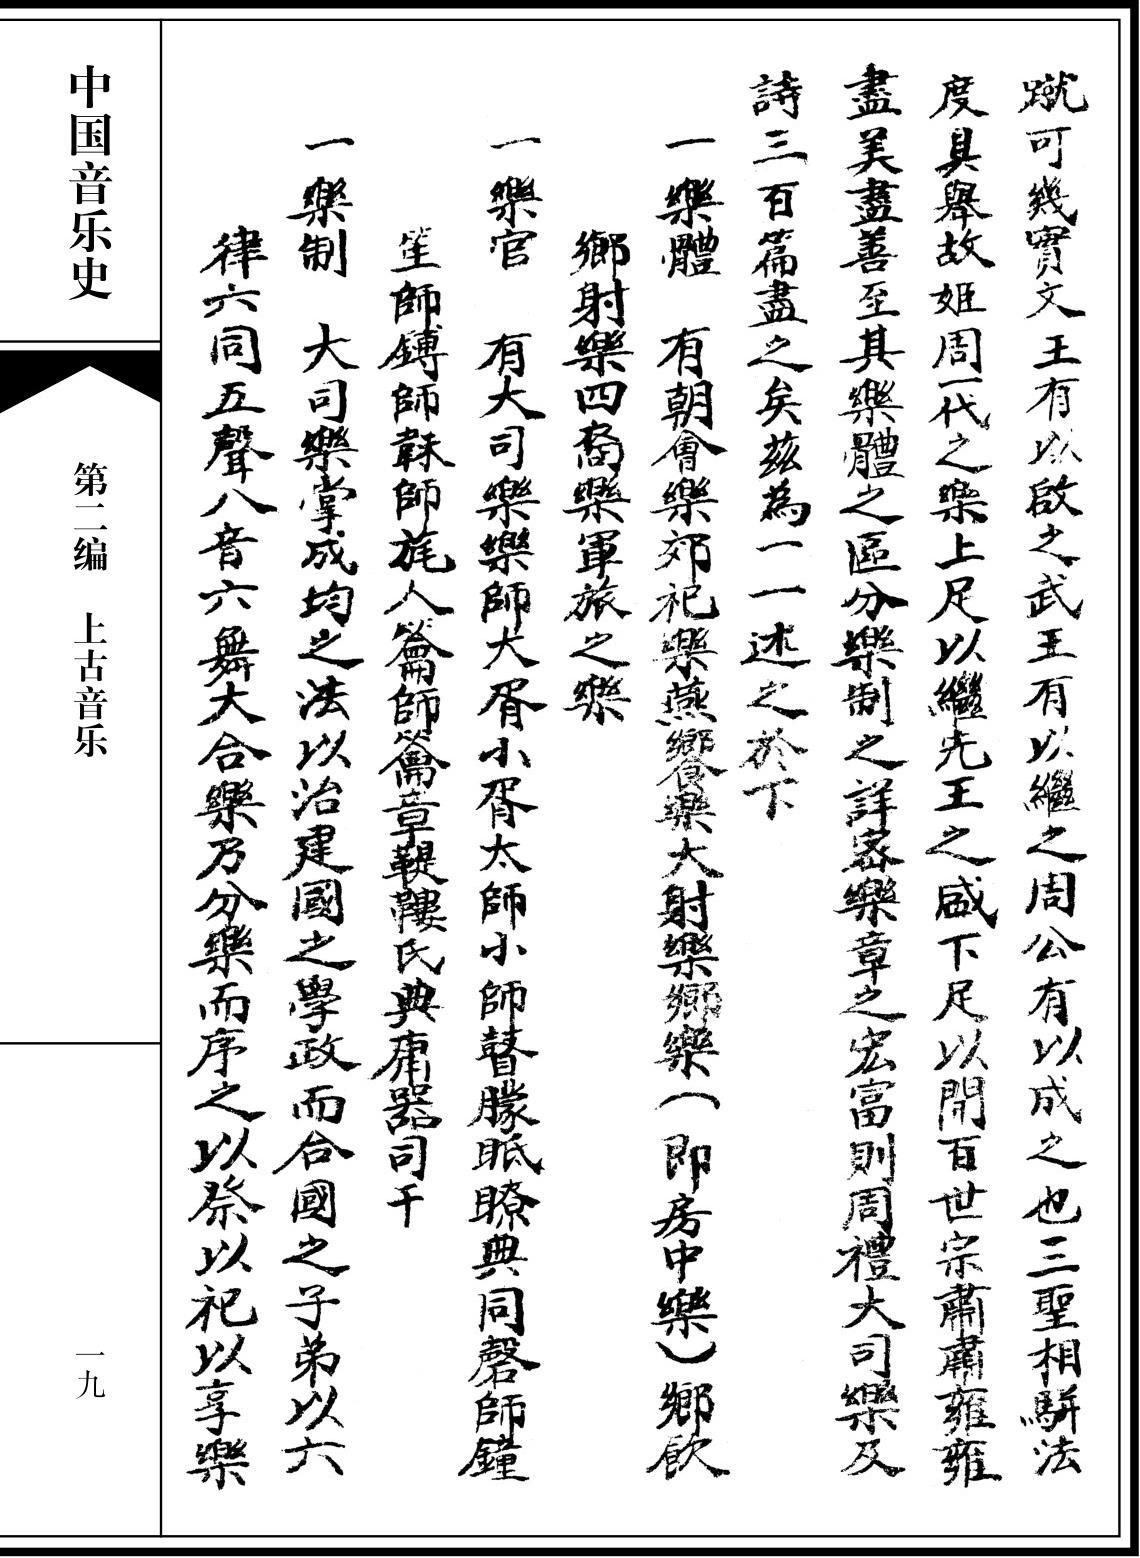 蹴可幾實文王有以啟之武王有以繼之周公有以成之也三聖相駢法
度具舉故姬周一代之樂上足以繼先王之盛下足以開百世宗肅肅雍雍
盡美盡善至其樂體之區分樂制之詳密樂章之宏富則周禮大司樂及
詩三百篇盡之矣茲為一一述之於下
一樂體　有朝會樂郊祀樂燕饗樂大射樂鄉樂(即房中樂)鄉飲
鄉射樂四裔樂軍旅之樂
一樂官　有大司樂樂師大胥小胥太師小師瞽矇眂瞭典同磬師鐘
笙師鎛師韎師旄人籥師籥章鞮鞻氏典庸器司干
一樂制　大司樂掌成均之法以治建國之學政而合國之子弟以六
律六同五聲八音六舞大合樂乃分樂而序之以祭以祀以享樂
中国音乐史
第二编　上古音乐
一九